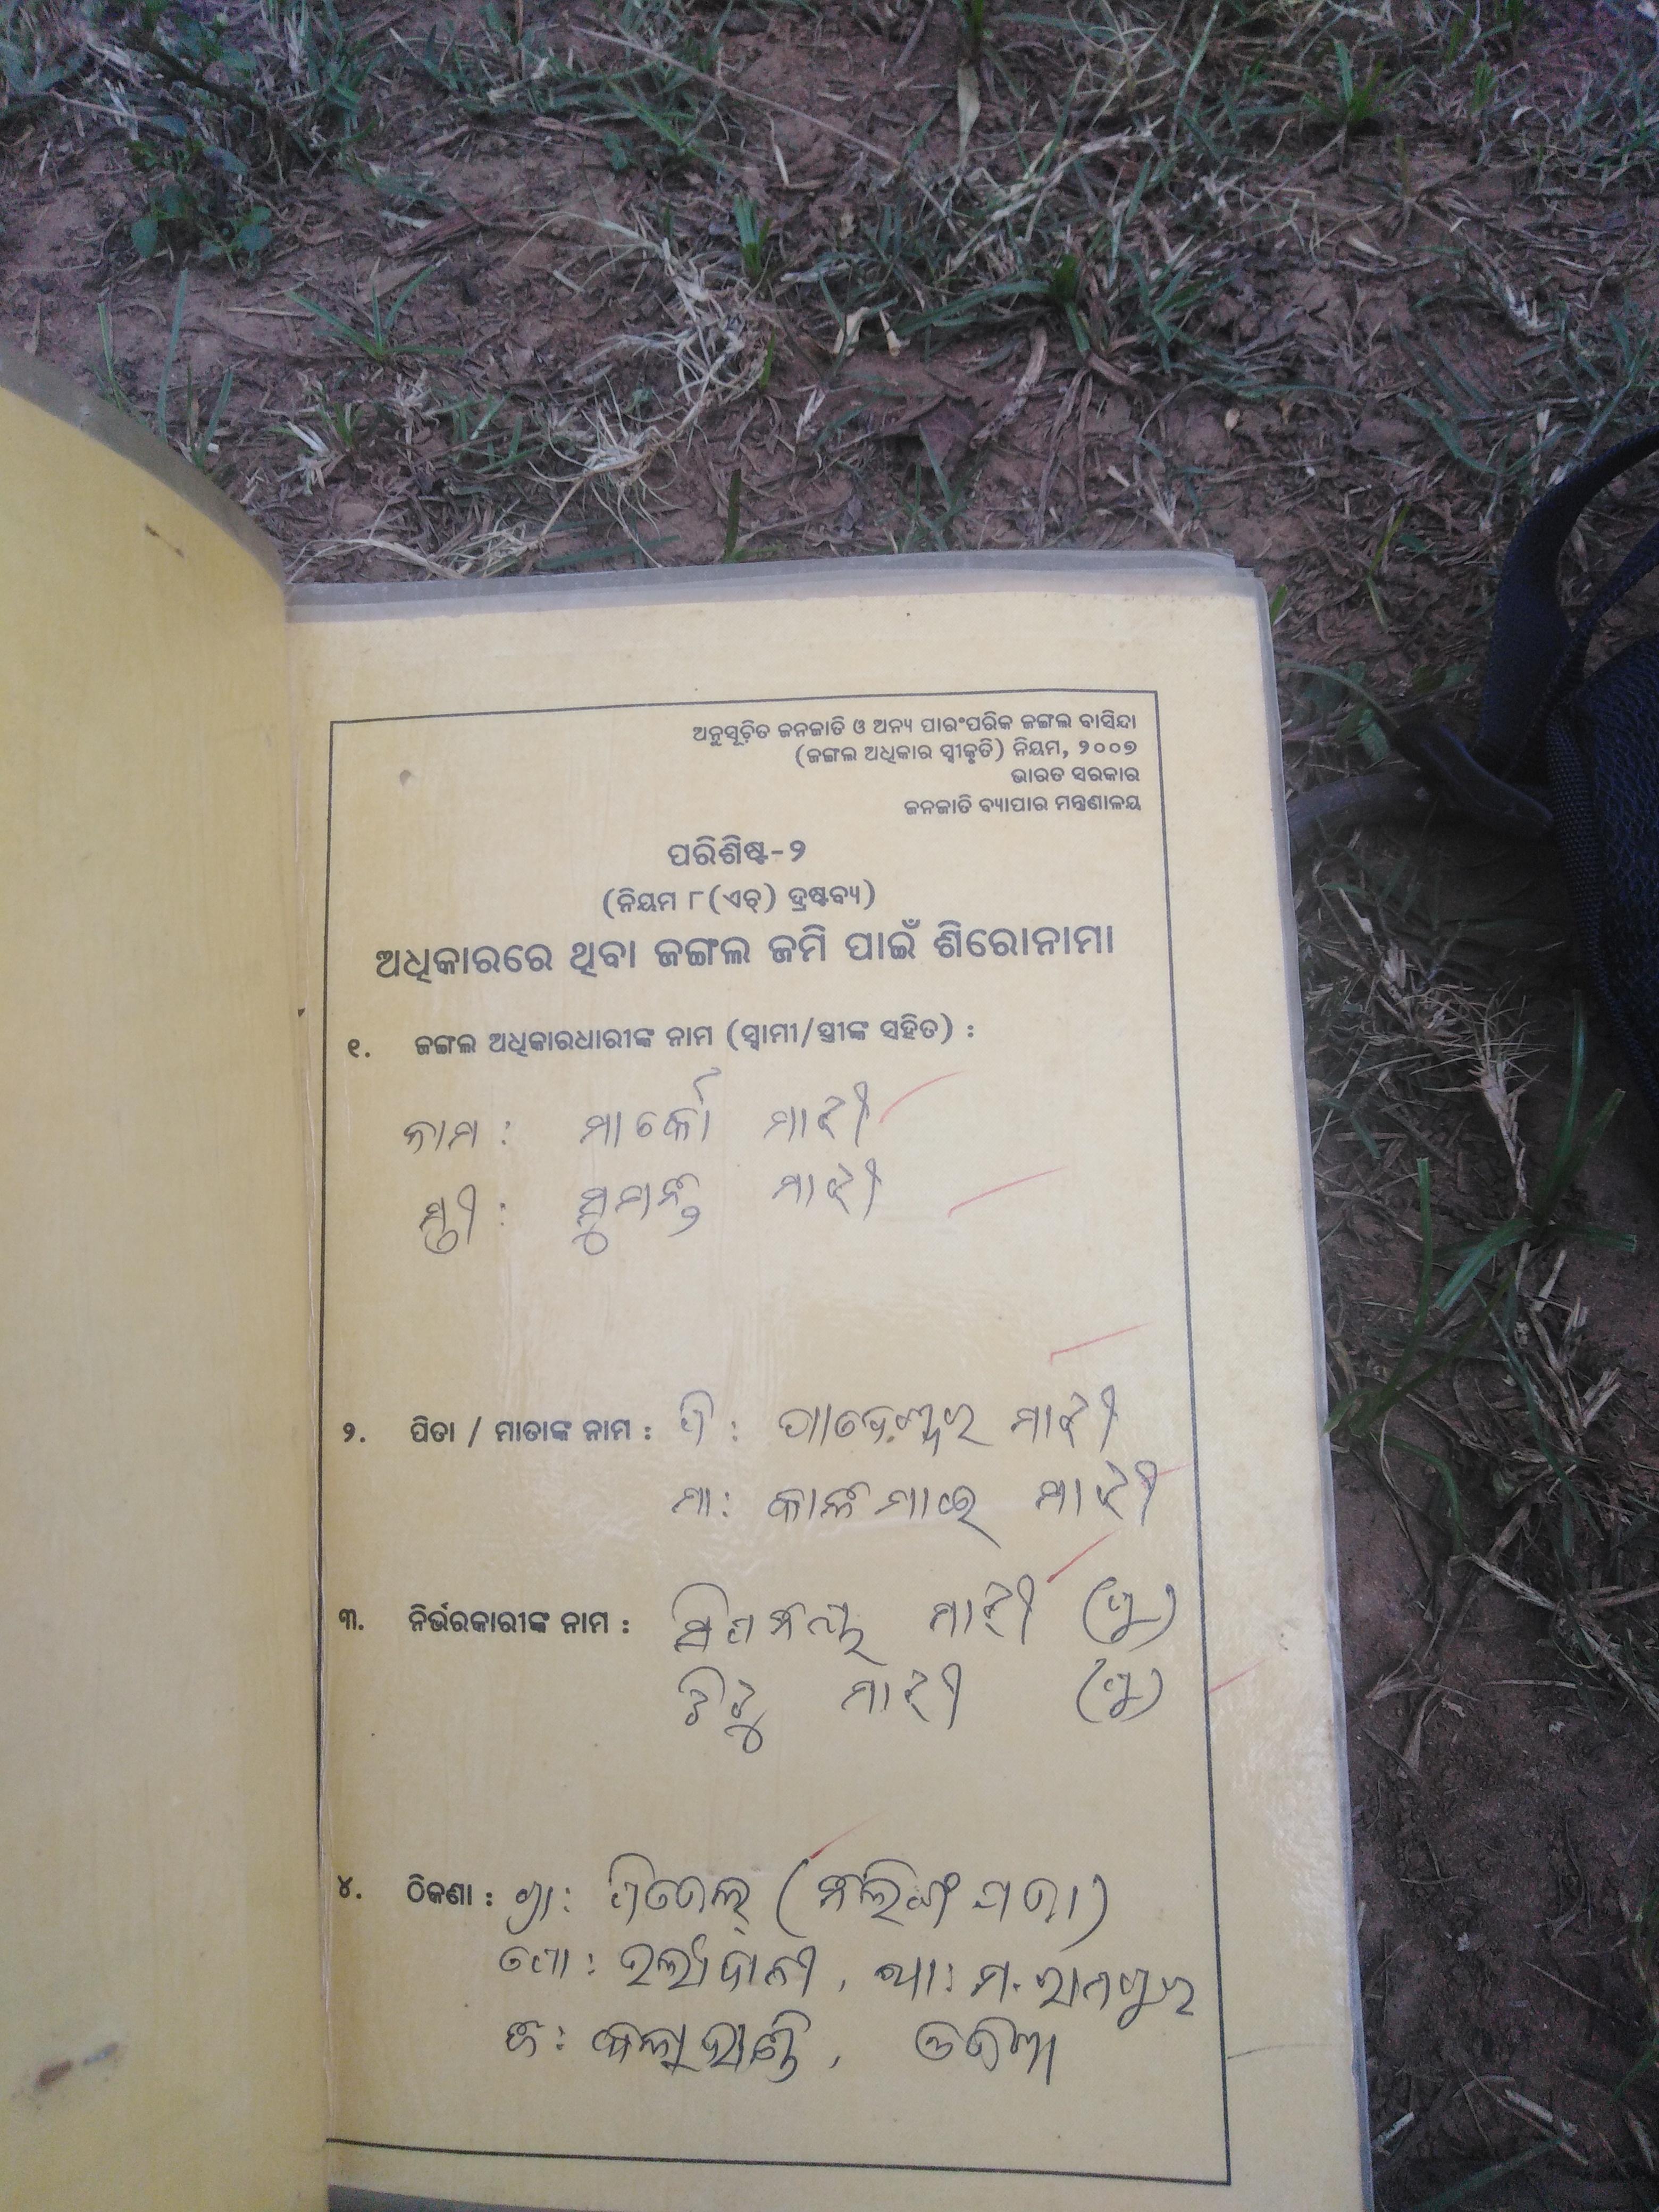 ଅନୁସୂଚିତ ଜନଜାତି ଓ ଅନ୍ୟ ପାରଂପରିକ ଜଙ୍ଗଲ ବାସିନ୍ଦା
(ଜଙ୍ଗଲ ଅଧିକାର ସ୍ୱୀକୃତି) ନିୟମ, ୨୦୦୭
ଭାରତ ସରକାର
ଜନଜାତି ବ୍ୟାପାର ମନ୍ତ୍ରଣାଳୟ
ପରିଶିଷ୍ଟ-୨
(ନିୟମ ୮(ଏଚ୍) ଦ୍ରଷ୍ଟବ୍ୟ)
ଅଧିକାରରେ ଥିବା ଜଙ୍ଗଲ ଜମି ପାଇଁ ଶିରୋନାମା
୧. ଜଙ୍ଗଲ ଅଧିକାରଧାରୀଙ୍କ ନାମ (ସ୍ୱାମୀ/ସ୍ତ୍ରୀଙ୍କ ସହିତ) :
ନାମ : ମାର୍କୋ ମାଝୀ
ସ୍ତ୍ରୀ : ମାଝୀ
୨. ପିତା / ମାତାଙ୍କ ନାମ : ପି : ମାଝୀ
ମା : ମାଝୀ
୩. ନିର୍ଭରକାରୀଙ୍କ ନାମ : ମାଝୀ (ପୁ)
ମାଝୀ (ପୁ)
୪. ଠିକଣା : ଗ୍ରା :
ପୋ : , ଥା : ମ. ରାମପୁର
ଜି : କଳାହାଣ୍ଡି , ଓଡିଶା